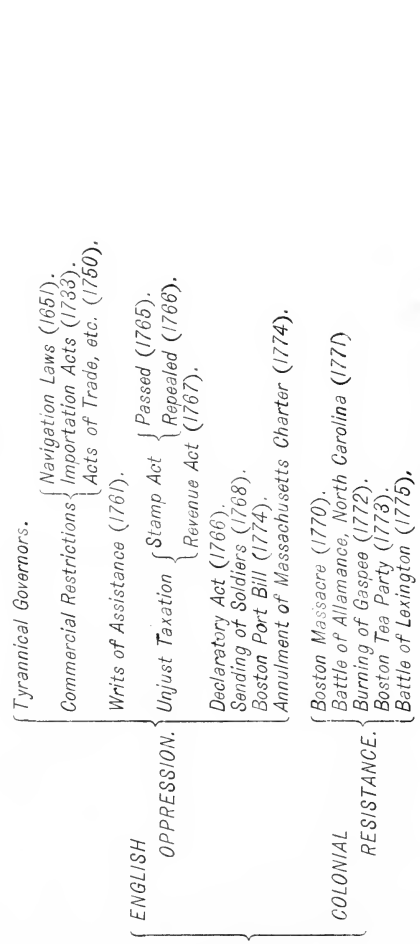 ENGLISH
OPPRESSION.
Tyrannical Governors.
Commercial Restrictions
Navigation Laws (1651).
Importation Acts (1733).
Acts of Trade, etc. (1750).
Writs of Assistance (1761).
Unjust Taxation
Stamp Act
Passed (1765).
Repealed (1766).
Revenue Act (1767).
Declaratory Act (1766).
Sending of Soldiers (1768).
Boston Port Bill (1774).
Annulment of Massachusetts Charter (1774).
COLONIAL
RESISTANCE.
Boston Massacre (1770).
Battle of Allamance, North Carolina (1771)
Burning of Gaspee (1772).
Boston Tea Party (1773).
Battle of Lexington (1775).